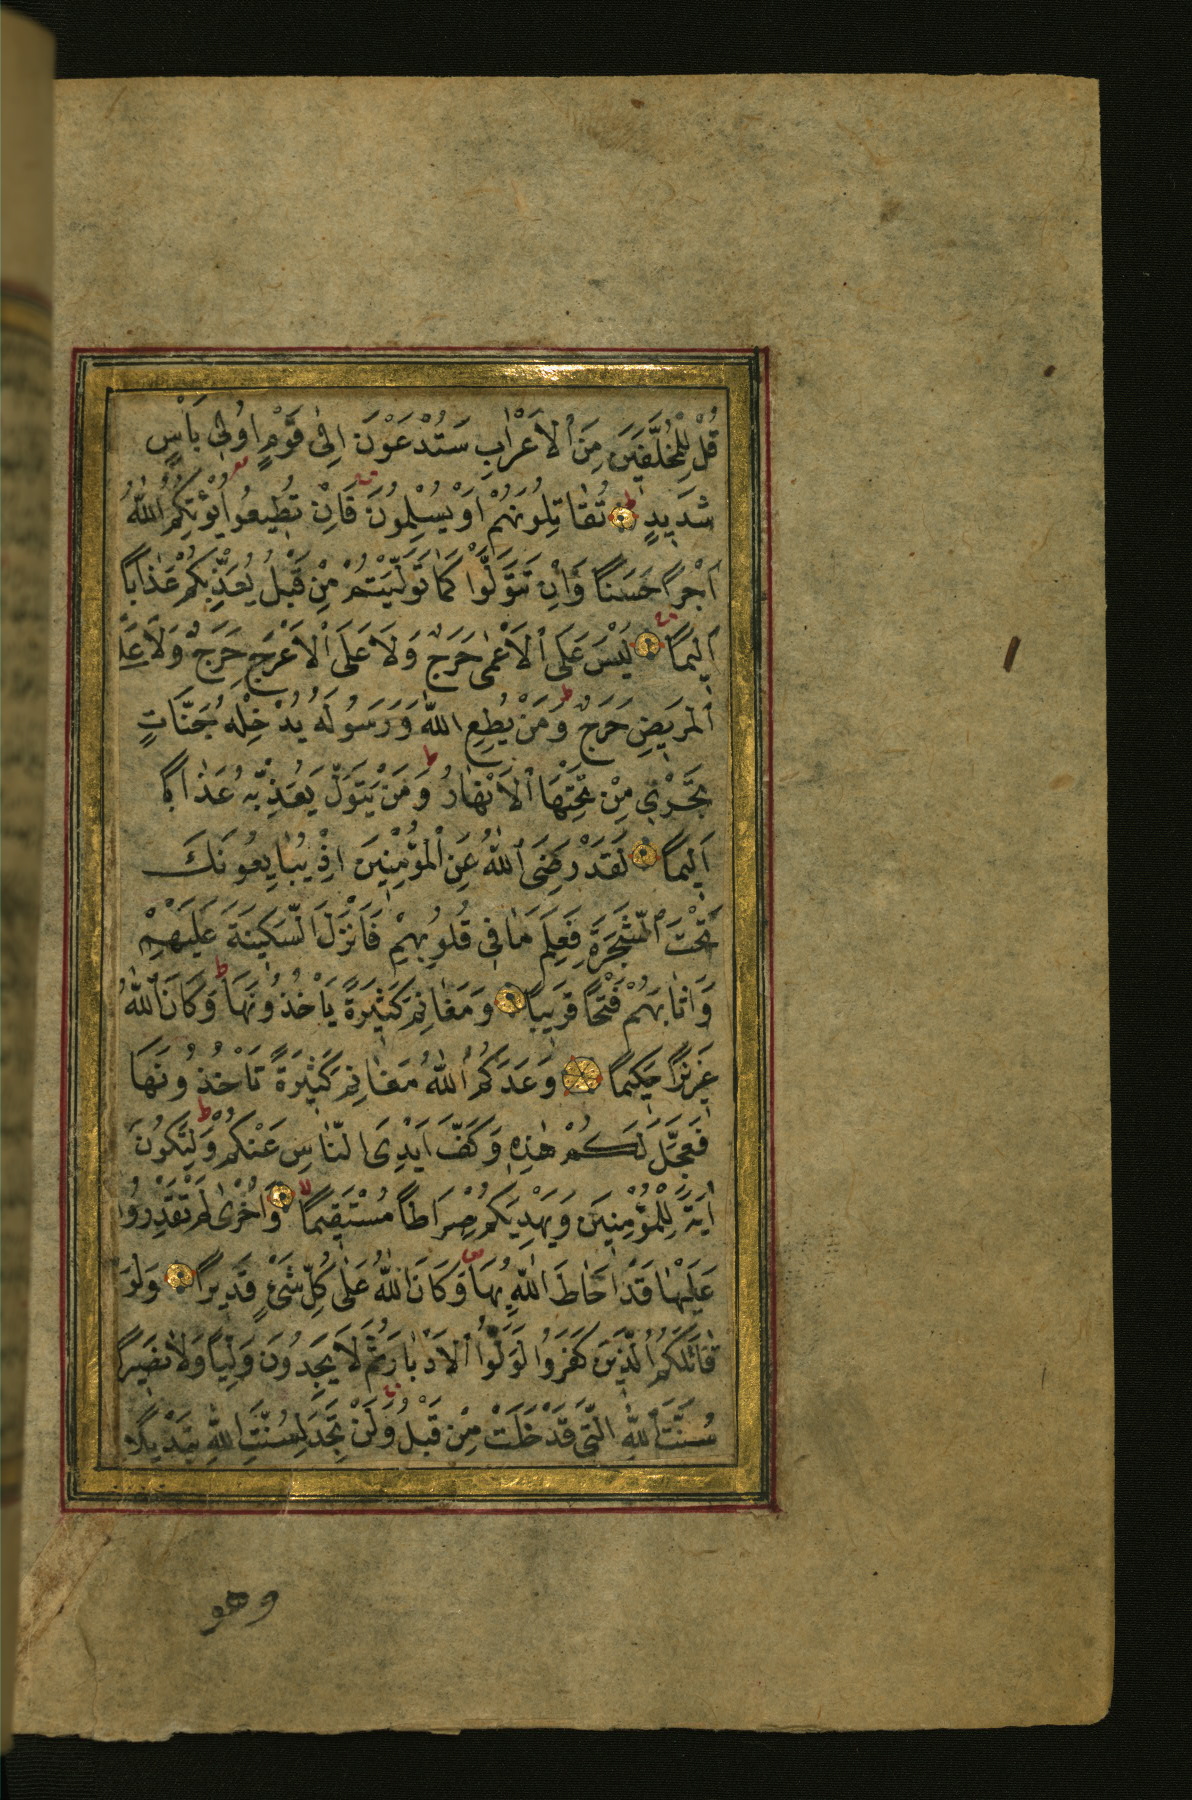 قُلْ لِلْمُخَلَّفِينَ مِنَ ٱلْاَعْرَابِ سَتُدْعَوْنَ اِلٰى قَوْمٍ اُولِى بَاْسٍ
شَدِيدٍ تُقَاتِلُونَهُمْ اَوْ يُسْلِمُونَ فَاِنْ تُطِيعُوا يُؤْتِكُمُ اللّٰهُ
اَجْرًا حَسَنًا وَاِنْ تَتَوَلَّوْا كَمَا تَوَلَّيْتُمْ مِنْ قَبْلُ يُعَذِّبْكُمْ عَذَابًا
اَلِيمًا لَيْسَ عَلَى ٱلْاَعْمٰى حَرَجٌ وَلَا عَلَى ٱلْاَعْرَجِ حَرَجٌ وَلَا عَلَى
ٱلْمَرِيضِ حَرَجٌ وَمَنْ يُطِعِ اللّٰهَ وَرَسُولَهُ يُدْخِلْهُ جَنَّاتٍ
تَجْرِى مِنْ تَحْتِهَا ٱلْاَنْهَارُ وَمَنْ يَتَوَلَّ يُعَذِّبْهُ عَذَابًا
اَلِيمًا لَقَدْ رَضِىَ ٱللّٰهُ عَنِ ٱلْمُؤْمِنِينَ اِذْ يُبَايِعُونَكَ
تَحْتَ ٱلشَّجَرَةِ فَعَلِمَ مَا فِى قُلُوبِهِمْ فَاَنْزَلَ السَّكِينَةَ عَلَيْهِمْ
وَاَثَابَهُمْ فَتْحًا قَرِيبًا وَمَغَانِمَ كَثِيرَةً يَاْخُذُونَهَا وَكَانَ اللّٰهُ
عَزِيزًا حَكِيمًا وَعَدَكُمُ ٱللّٰهُ مَغَانِمَ كَثِيرَةً تَاْخُذُونَهَا
فَعَجَّلَ لَكُمْ هٰذِهِ وَكَفَّ اَيْدِىَ النَّاسِ عَنْكُمْ وَلِتَكُونَ
اٰيَةً لِلْمُؤْمِنِينَ وَيَهْدِيَكُمْ صِرَاطًا مُسْتَقِيمًا وَاُخْرٰى لَمْ تَقْدِرُوا
عَلَيْهَا قَدْ اَحَاطَ اللّٰهُ بِهَا وَكَانَ اللّٰهُ عَلٰى كُلِّ شَىْءٍ قَدِيرًا وَلَوْ
قَاتَلَكُمُ الَّذِينَ كَفَرُوا لَوَلَّوُا ٱلْاَدْبَارَ ثُمَّ لَا يَجِدُونَ وَلِيًّا وَلَا نَصِيرًا
سُنَّتَ ٱللّٰهِ الَّتِى قَدْ خَلَتْ مِنْ قَبْلُ وَلَنْ تَجِدَ لِسُنَّتِ اللّٰهِ تَبْدِيلًا
وهو